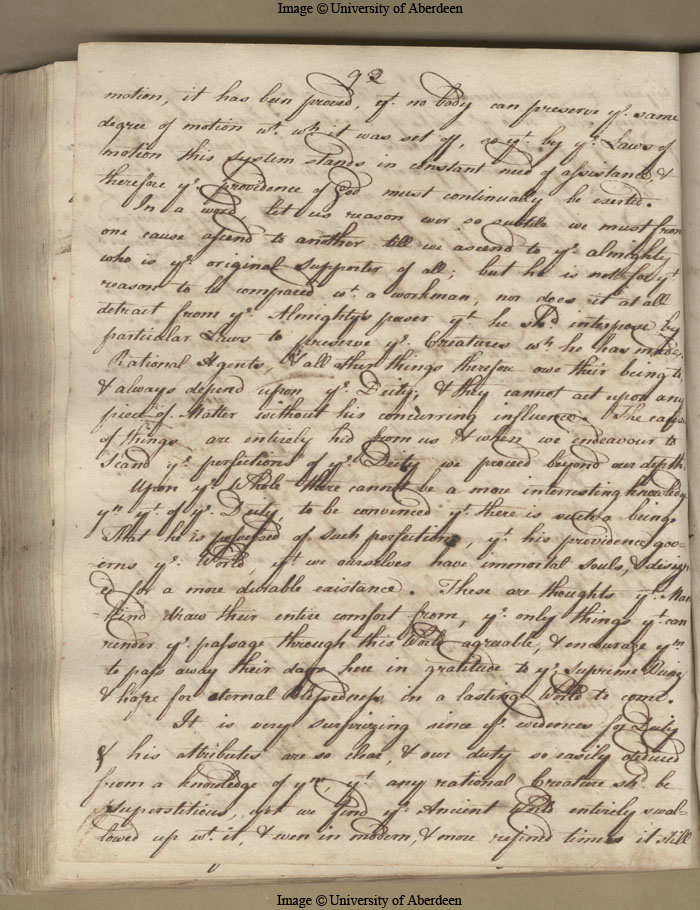 Image © University of Aberdeen
92
motion, it has been proved, yt. no body can preserve ye. same
degree of motion wt. wh. it was set off, so yt. by ye. Laws of
motion this system stands in constant need of assistance, &
therefore ye. providence of God must continually be exerted.
In a word, let us reason ever so subtile we must from
one cause ascend to another till we ascend to ye. almighty
who is ye. original supporter of all; but he is not for yt.
reason to be compared wt. a workman, nor does it at all
detract from ye. Almightys power yt. he shd. interpose by
particular Laws to preserve ye. Creatures wh. he has made,
Rational Agents, & all other things therefore owe their being to
& always depend upon ye. Deity, & they cannot act upon any
piece of Matter without his concurring influence. The causes
of things are entirely hid from us & when we endeavour to
scand ye. perfections of ye. Deity we proceed beyond our depth
Upon ye. Whole there cannot be a more interresting knowledge
yn. yt. of ye. Deity, to be convinced yt. there is such a being
That he is possessed of such perfections, yt. his providence gov=
=erns ye. World, yt. we ourselves have immortal souls, & design=
ed for a more durable existance. These are thoughts yt. Man
=kind draw their entire comfort from, ye. only things yt. can
render ye. passage through this World agreable, & encourage ym
to pass away their days here in gratitude to ye. Supreme Being
& hope for eternal Blessedness in a lasting World to come.
It is very surprizing since ye. evidences for Deity
& his attributes are so clear, & our duty so easily deduced
from a knowledge of ym, yt. any rational Creature shd. be
superstitious, yet we find ye. Ancient World entirely swal=
lowed up wt. it, & even in modern, & more refined times it still
Image © University of Aberdeen